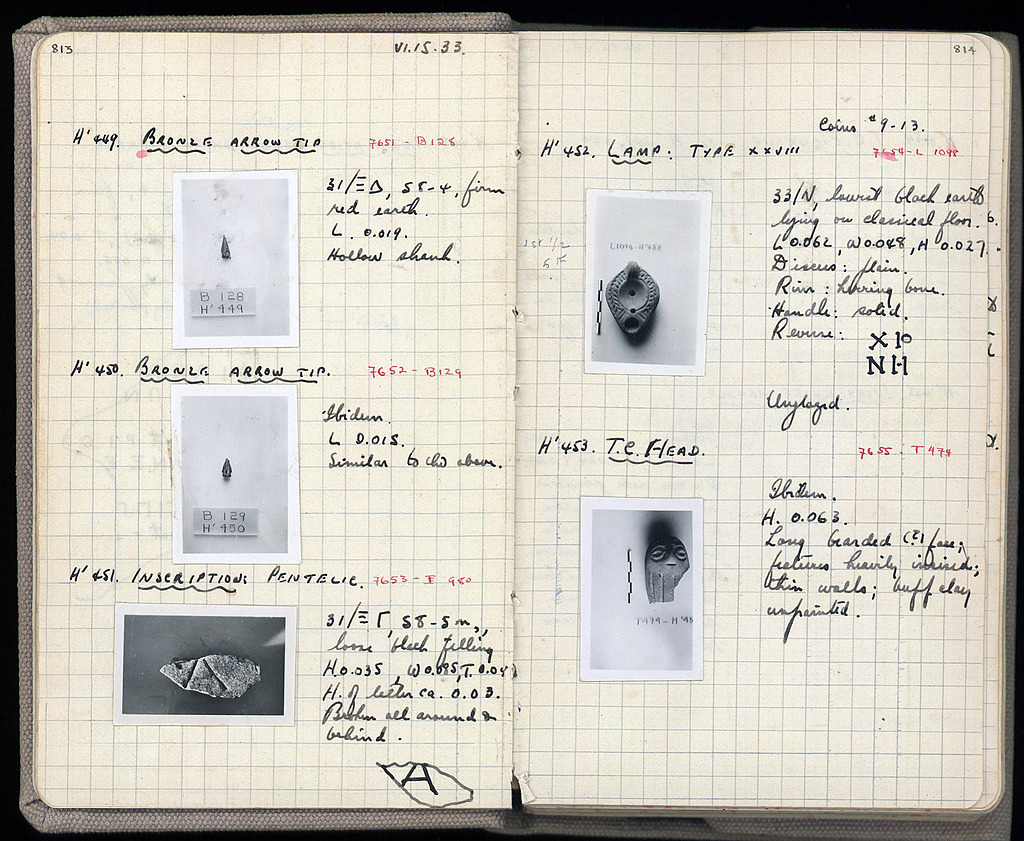 813
VI.15.33
H' 449. BRONZE ARROW TIP 7651 - B 128
31/ΞΔ, 58-4, firm
red earth.
L. 0.019.
Hollow shank.
B 128
H' 449
H' 450. BRONZE ARROW TIP. 7652 - B129
Ibidem.
L 0.015.
Similar to the above.
B 129
H' 450
H' 451. INSCRIPTION: PENTELIC. 7653 - I 980
31/ΞΓ, 58-5m,
loose black filling
H.0.035, W0.095, T. 0.04
H. of letter ca. 0.03.
Broken all around &
behind.
A
814
Coins #9-13.
H' 452. LAMP: TYPE XXVIII 7654 - L 1098
33/N, lowest black earth
lying on classical floor.
L 0.062, W 0.048, H 0.027.
Discus: plain.
Rim: herring bone.
Handle: solid.
Reverse: ΧΙΟ
ΝΗ
Unglazed.
L1098-H'452
1st 1/2
5
H' 453. T.C. HEAD. 7655 - T 474
Ibidem.
H. 0.063.
Long bearded (?) face;
features heavily incised;
thin walls; buff clay
unpainted.
T474-H'45